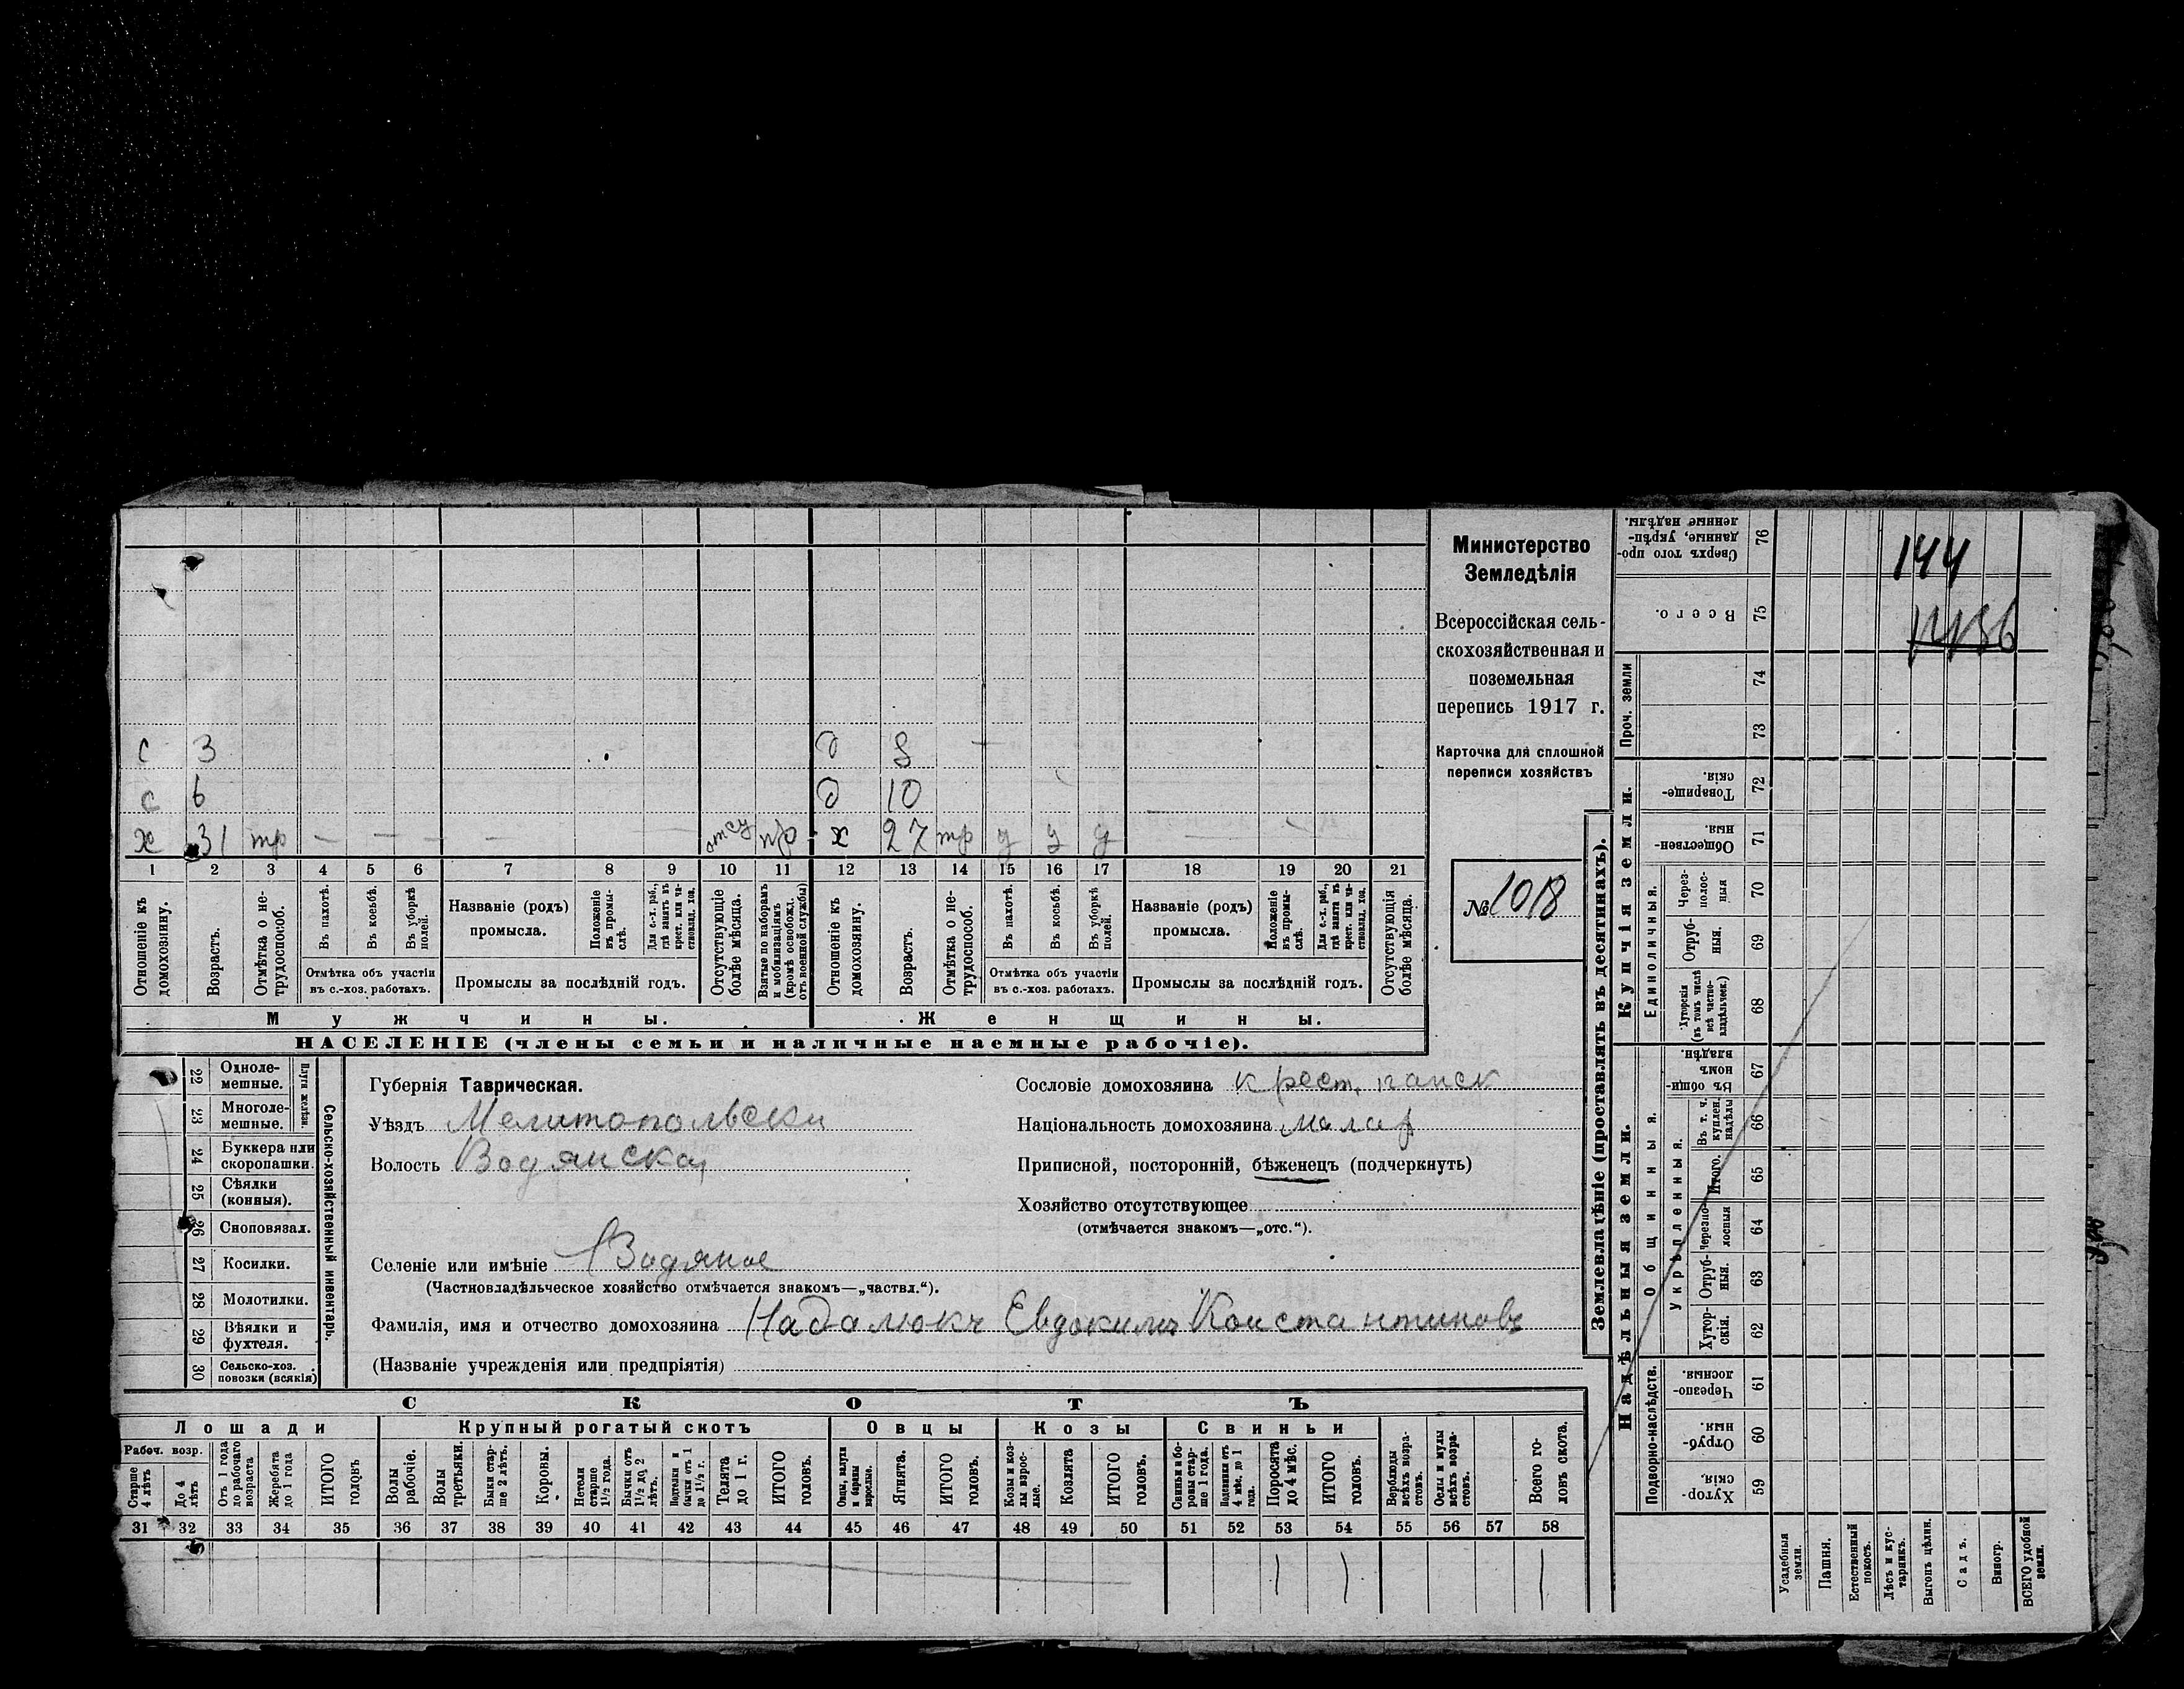 Министерство
Земледѣлія
Всероссійская сель-
скохозяйственная и
поземельная
перепись 1917 г.
Карточка для сплошной
переписи хозяйствъ
№ 1018
144
1436
с 3 д 8 —
с 6 д 10
х 31 тр — — — — — отсу пр х 27 тр д д д — —
1 2 3 4 5 6 7 8 9 10 11 12 13 14 15 16 17 18 19 20 21
Отношеніе къ домохозяину.
Возрастъ.
Отмѣтка о не-трудоспособ.
Въ пахотѣ.
Въ косьбѣ.
Въ уборкѣ полей.
Отмѣтка объ участіи
въ с.-хоз. работахъ.
Названіе (родъ)
промысла.
Положеніе въ промы-слѣ.
Для с.-х. раб., гдѣ занятъ въ крест. или ча-ствовлад. хоз.
Промыслы за послѣдній годъ.
Отсутствующіе болѣе мѣсяца.
Взятые по наборамъ и мобилизаціямъ (кромѣ освобожд. отъ военной службы)
Отношеніе къ домохозяину.
Возрастъ.
Отмѣтка о не-трудоспособ.
Въ пахотѣ.
Въ косьбѣ.
Въ уборкѣ полей.
Отмѣтка объ участіи
въ с.-хоз. работахъ.
Названіе (родъ)
промысла.
Положеніе въ промы-слѣ.
Для с.-х. раб., гдѣ занята въ крест. или ча-ствовлад. хоз.
Промыслы за послѣдній годъ.
Отсутствующія болѣе мѣсяца.
Мужчины.
Женщины.
НАСЕЛЕНІЕ (члены семьи и наличные наемные рабочіе).
22 Одноле-мешные.
23 Многоле-мешные.
Плуги желѣзн.
24 Буккера или скоропашки.
25 Сѣялки (конныя).
26 Сноповязал.
27 Косилки.
28 Молотилки.
29 Вѣялки и фухтеля.
30 Сельско-хоз. повозки (всякія)
Сельско-хозяйственный инвентарь.
Губернія Таврическая.
Уѣздъ Мелитопольски
Волость Водянская
Селеніе или имѣніе Водяное
(Частновладѣльческое хозяйство отмѣчается знакомъ—„частвл.“).
Фамилія, имя и отчество домохозяина Надалюкъ Евдокимъ Константиновъ
(Названіе учрежденія или предпріятія)
Сословіе домохозяина крест
Національность домохозяина малор
Приписной, посторонній, бѣженецъ (подчеркнуть)
Хозяйство отсутствующее
(отмѣчается знакомъ—„отс.“).
СКОТЪ
Лошади
Крупный рогатый скотъ
Овцы
Козы
Свиньи
Рабоч. возр.
Старше 4 лѣтъ
До 4 лѣтъ
Отъ 1 года до рабочаго возраста
Жеребята до 1 года
ИТОГО головъ
Волы рабочіе.
Волы третьяки.
Быки стар-ше 2 лѣтъ.
Коровы.
Нетели старше 1½ года.
Бычки отъ 1½ до 2 лѣтъ.
Подтелки и бычки отъ 1 до 1½ г.
Телята до 1 г.
ИТОГО головъ.
Овцы, валухи и бараны взрослые.
Ягнята.
ИТОГО головъ.
Козы и коз-лы взрос-лые.
Козлята
ИТОГО головъ.
Свиньи и бо-ровы стар-ше 1 года.
Подсвинки отъ 4 мѣс. до 1 года.
Поросята до 4 мѣс.
ИТОГО головъ.
Верблюды всѣхъ возра-стовъ.
Ослы и мулы всѣхъ возра-стовъ.
Всего го-ловъ скота.
31 32 33 34 35 36 37 38 39 40 41 42 43 44 45 46 47 48 49 50 51 52 53 54 55 56 57 58
1 1 1
Землевладѣніе (проставлять въ десятинахъ).
Надѣльныя земли.
Купчія земли.
Проч. земли
Общинныя.
Укрѣпленныя.
Единоличныя.
Подворно-наслѣдств.
Сверхъ того про-данные, укрѣп-ленные надѣлы. 76
Всего. 75
74
73
Товарище-скія. 72
Обществен-ныя 71
Через-полос-ныя 70
Отруб-ныя. 69
Хуторскія (въ томъ числѣ всѣ частно-владѣльческ.) 68
Въ общин-номъ владѣн. 67
Въ т. ч. куплен. надѣлы 66
Итого. 65
Черезпо-лосныя 64
Отруб-ныя. 63
Хутор-скія. 62
Черезпо-лосныя. 61
Отруб-ныя. 60
Хутор-скія. 59
Усадебныя земли.
Пашня.
Естественный покосъ.
Лѣсъ и кус-тарникъ.
Выгонъ цѣлин.
Садъ.
Виногр.
ВСЕГО удобной земли.